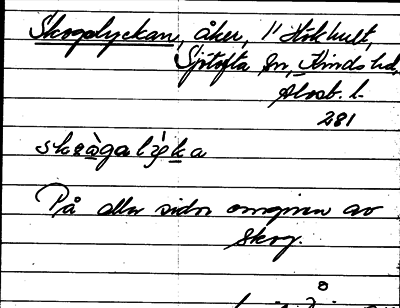 Skogslyckan, åker, 1" Hökhult,
Sjötofta sn, Kinds hd,
Älvsb. l.
281
skɷ̀galỳka
På alla sidor omgiven av
skog.